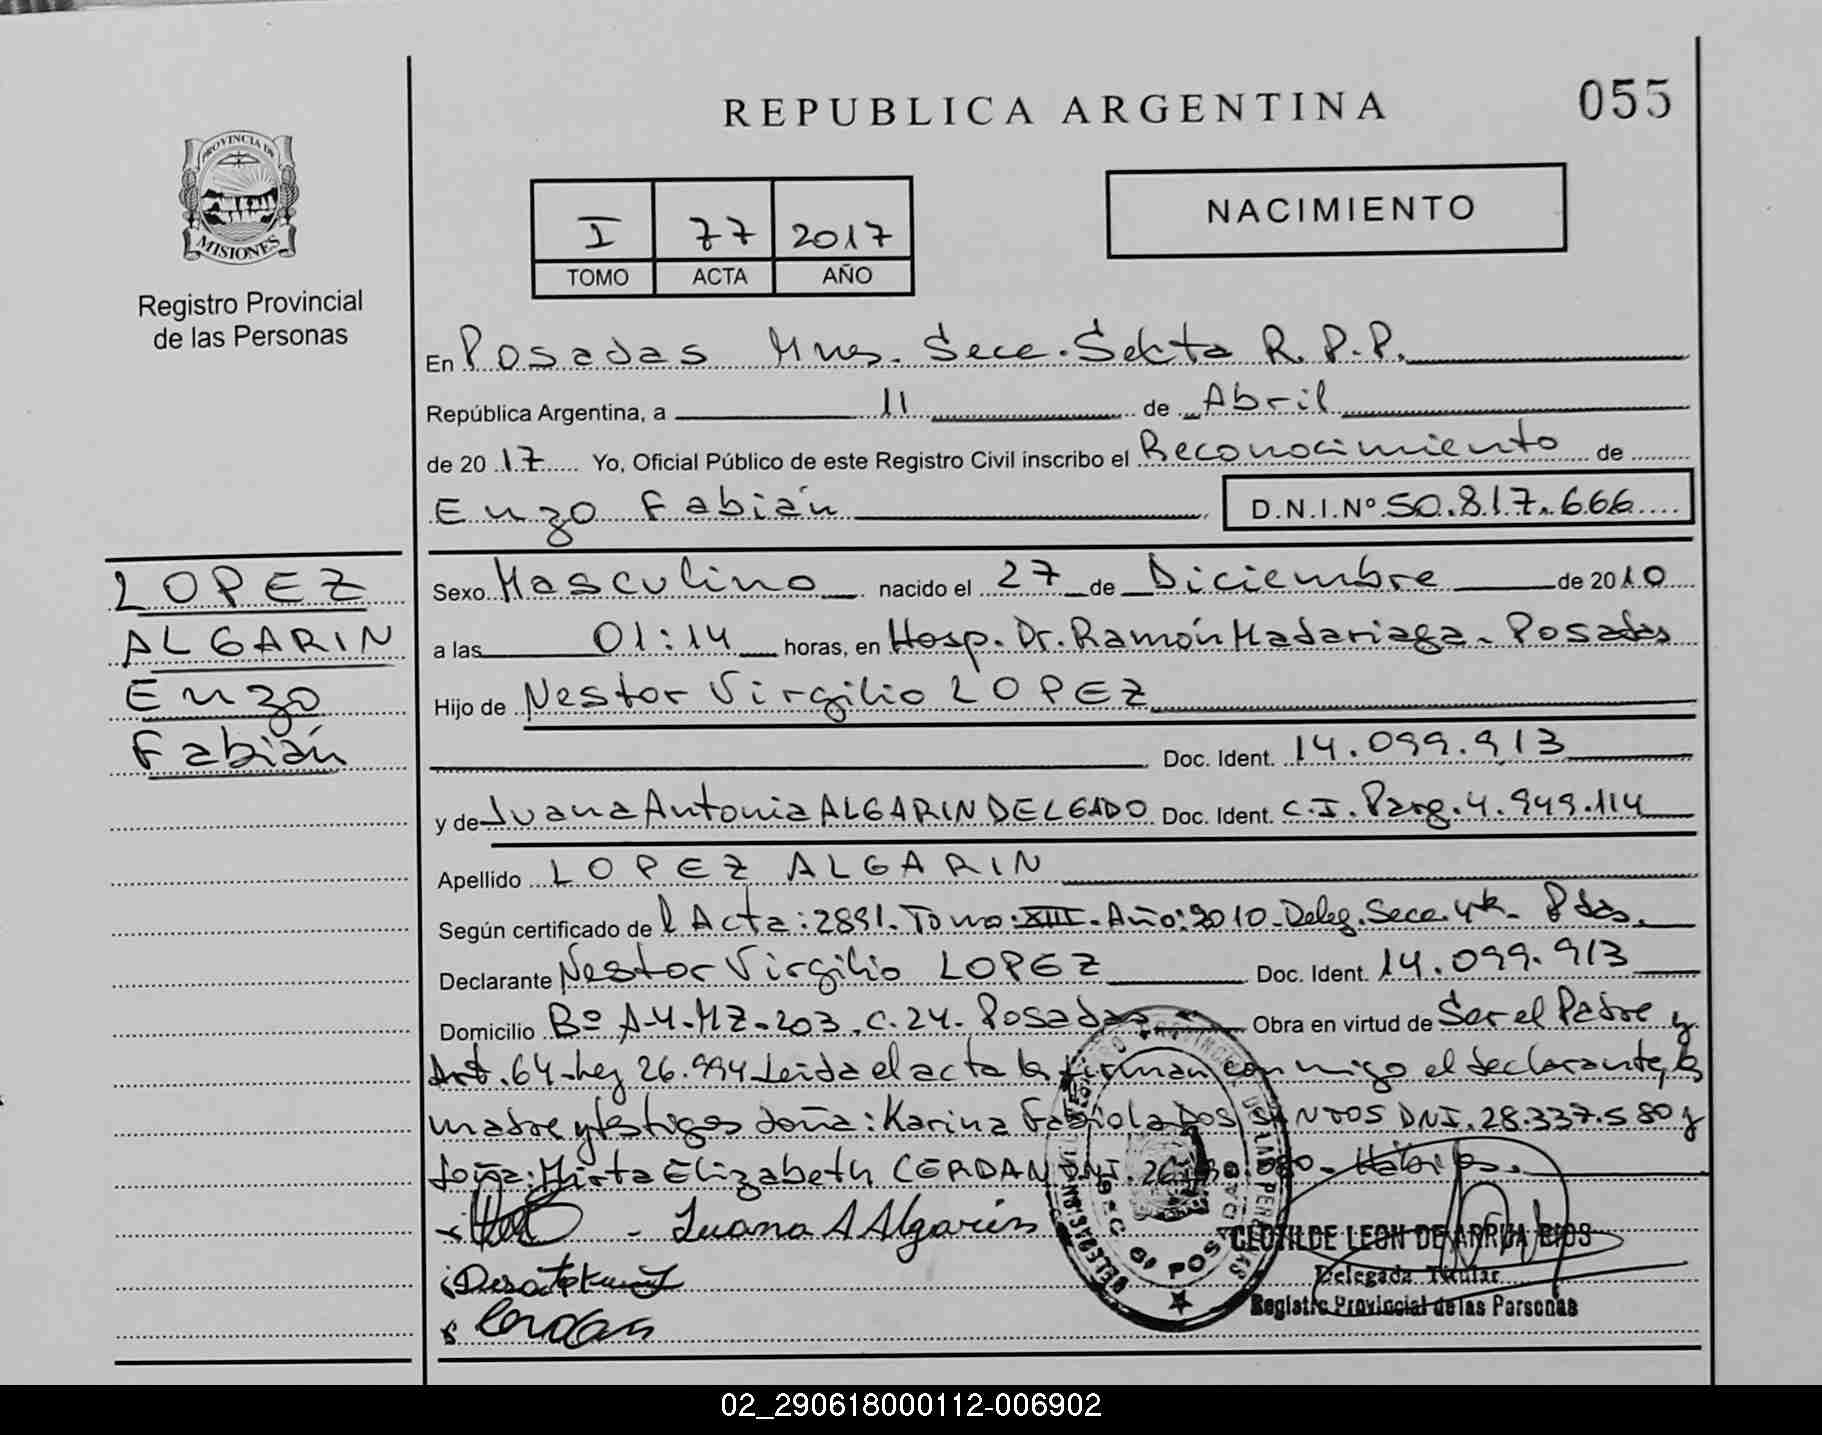 REPUBLICA ARGENTINA
055
PROVINCIA DE
MISIONES
Registro Provincial
de las Personas
I 77 2017
TOMO ACTA AÑO
NACIMIENTO
En Posadas Mnes. Secc. Sexta R.P.P.
República Argentina, a 11 de Abril
de 2017 Yo, Oficial Público de este Registro Civil inscribo el Reconocimiento de
Enzo Fabián D.N.I.Nº 50.817.666
LOPEZ
ALGARIN
Enzo
Fabián
Sexo Masculino nacido el 27 de Diciembre de 2010
a las 01:14 horas, en Hosp. Dr. Ramón Madariaga - Posadas
Hijo de Nestor Virgilio LOPEZ
Doc. Ident. 14.099.913
y de Juana Antonia ALGARIN DELGADO Doc. Ident. C.I. Parg. 4.949.114
Apellido LOPEZ ALGARIN
Según certificado de l Acta: 2891. Tomo: XIII - Año: 2010 - Deleg. Secc. 4ta - Pdas.
Declarante Nestor Virgilio LOPEZ Doc. Ident. 14.099.913
Domicilio Bº A-4-MZ-203. C.24. Posadas Obra en virtud de Ser el Padre y
Art. 64 - Ley 26.994 Leída el acta la firman conmigo el declarante, la
madre y testigos doña: Karina Fabiola DOS SANTOS DNI. 28.337.580 y
doña: Mirta Elizabeth CERDAN DNI. 26.
Juana A Algarin
CLOTILDE LEON DE ARRUA RIOS
Delegada Titular
Registro Provincial de las Personas
02_290618000112-006902